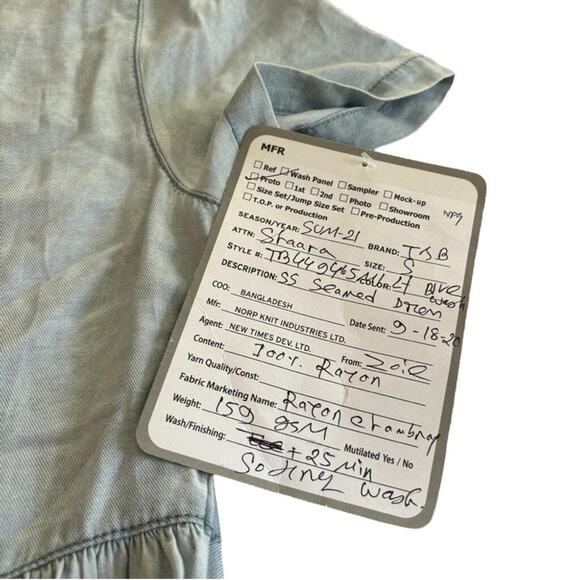 MFR
Ref Wash Panel Sampler Mock-up
Proto 1st 2nd Photo Showroom NPG
Size Set/Jump Size Set Pre-Production
T.O.P. or Production
SEASON/YEAR: SUM-21 BRAND: TSB
ATTN: Shaara SIZE: S
STYLE #: COLOR: LT Blue wash
DESCRIPTION: SS Seamed Dress
COO: BANGLADESH
Mfr: NORP KNIT INDUSTRIES LTD. Date Sent: 9-18-20
Agent: NEW TIMES DEV. LTD. From: Zoie
Content: 100% Rayon
Yarn Quality/Const:
Fabric Marketing Name: Rayon Chambray
Weight: 159 gsm
Wash/Finishing: + 25 Min Mutilated Yes / No
wash.